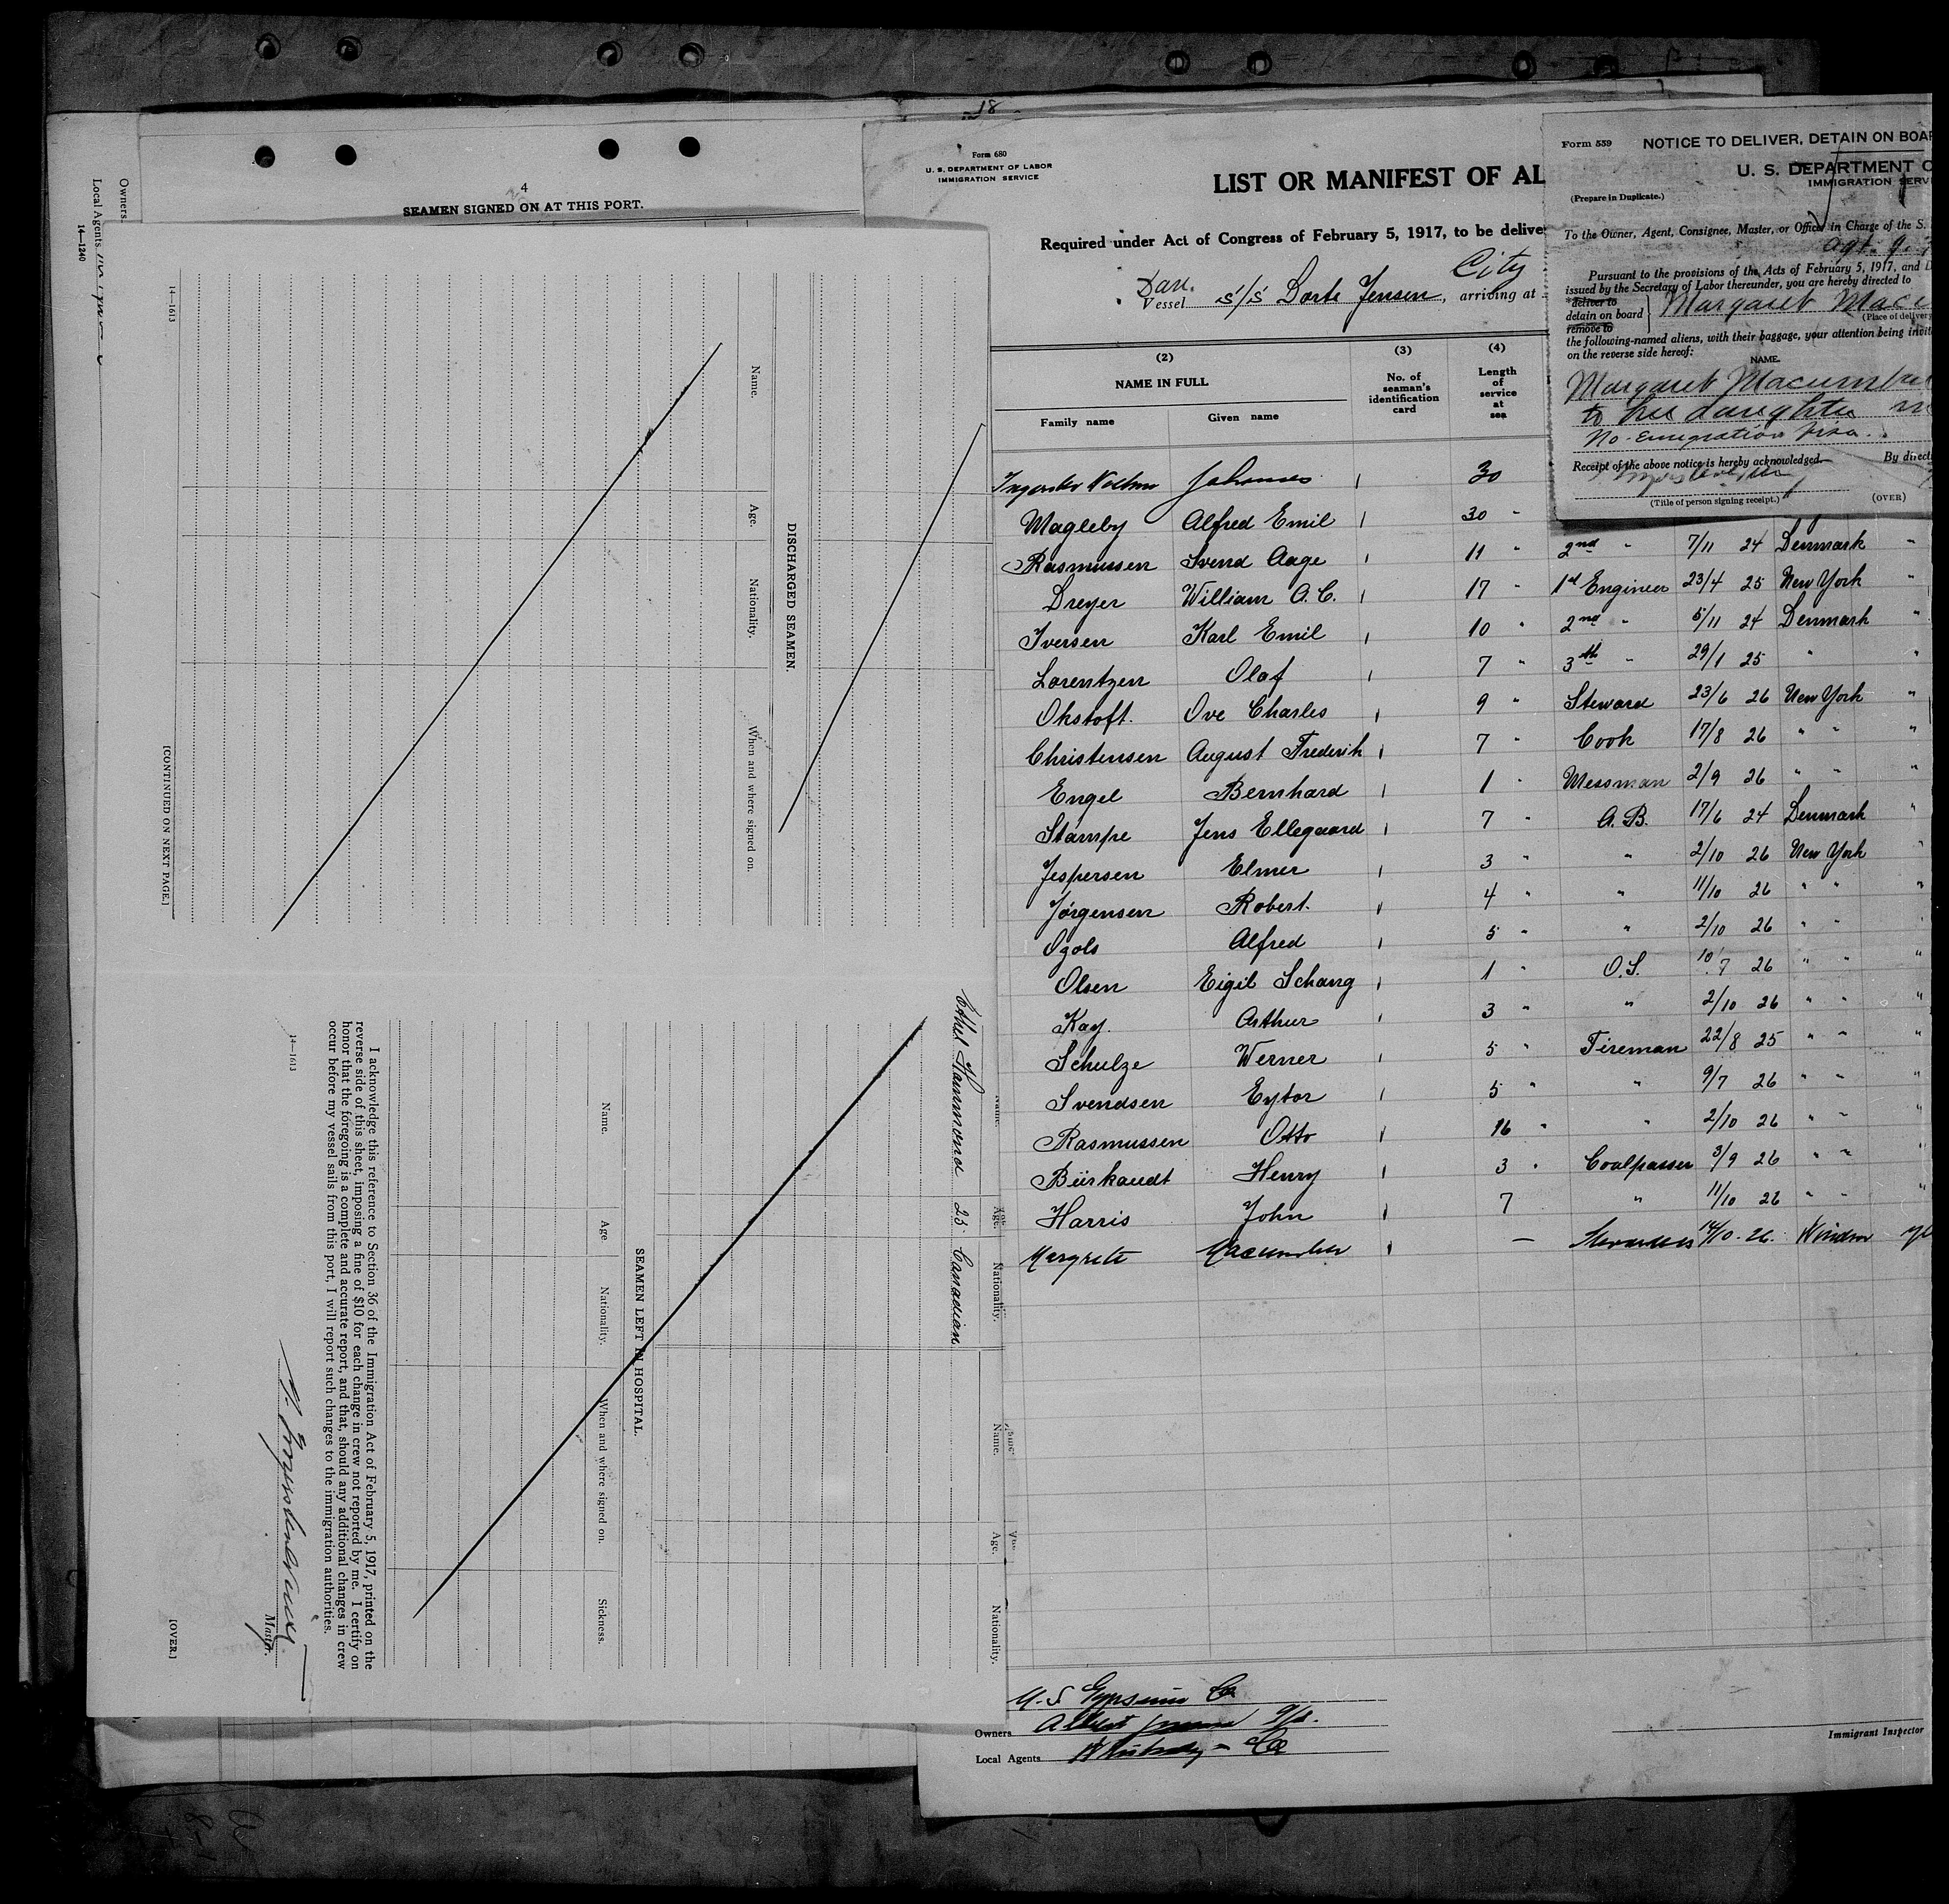 18
4
SEAMEN SIGNED ON AT THIS PORT.
Owners
Local Agents
14—1240
14—1613
Name.
Age.
Nationality.
When and where signed on.
DISCHARGED SEAMEN.
[CONTINUED ON NEXT PAGE.]
Ethel Hammond 25 Canadian
Name.
Age.
Nationality.
Name.
Age.
Nationality.
SEAMEN LEFT IN HOSPITAL.
Name.
Age
Nationality.
When and where signed on.
Sickness.
I acknowledge this reference to Section 36 of the Immigration Act of February 5, 1917, printed on the
reverse side of this sheet, imposing a fine of $10 for each change in crew not reported by me. I certify on
honor that the foregoing is a complete and accurate report, and that, should any additional changes in crew
occur before my vessel sails from this port, I will report such changes to the immigration authorities.
Master.
14—1613
[OVER.]
Form 680
U. S. DEPARTMENT OF LABOR
IMMIGRATION SERVICE
LIST OR MANIFEST OF AL
Required under Act of Congress of February 5, 1917, to be delive
Dan. City
Vessel s/s Dorte Jensen, arriving at
(2) (3) (4)
NAME IN FULL
Family name Given name
No. of seaman's identification card
Length of service at sea
Johannes 30
Magleby Alfred Emil 30 "
Rasmussen Svend Aage 11 " 2nd " 7/11 24 Denmark "
Dreyer William A. C. 17 " 1st Engineer 23/4 25 New York "
Iversen Karl Emil 10 " 2nd " 5/11 24 Denmark "
Lorentzen Olaf 7 " 3th " 29/1 25 " "
Okstoft. Ove Charles 9 " Steward 23/6 26 New York "
Christensen August Frederik 7 " Cook 17/8 26 " " "
Engel Bernhard 1 " Messman 2/9 26 " " "
Stampe Jens Ellegaard 7 " A.B. 17/6 24 Denmark "
Jespersen Elmer 3 " " 2/10 26 New York "
Jørgensen Robert. 4 " " 11/10 26 " " "
Ozols Alfred 5 " " 2/10 26 " " "
Olsen Eigil Schang 1 " O.S. 10/7 26 " " "
Kay. Arthur 3 " " 2/10 26 " " "
Schulze Werner 5 " Fireman 22/8 25 " " "
Svendsen Eytor 5 " " 9/7 26 " " "
Rasmussen Otto 16 " " 2/10 26 " " "
Bürkaudt Henry 3 " Coalpasser 3/9 26 " " "
Harris John 7 " 11/10 26 " " "
Margrete Macumber — Stewardess 14/10 - 26. Windsor
U. S. Gypsum Co
Owners Albert Jensen
Local Agents Co
Immigrant Inspector
Form 559 NOTICE TO DELIVER, DETAIN ON BOAR
U. S. DEPARTMENT O
IMMIGRATION SERVI
(Prepare in Duplicate.)
To the Owner, Agent, Consignee, Master, or Officer in Charge of the S.
Pursuant to the provisions of the Acts of February 5, 1917, and D
issued by the Secretary of Labor thereunder, you are hereby directed to
*deliver to
detain on board
remove to
Margaret Macu
(Place of delivery
the following-named aliens, with their baggage, your attention being invit
on the reverse side hereof:
NAME.
Margaret Macumber
to her daughter
No-Emigration Visa.
Receipt of the above notice is hereby acknowledged By directi
(Title of person signing receipt.) (OVER)